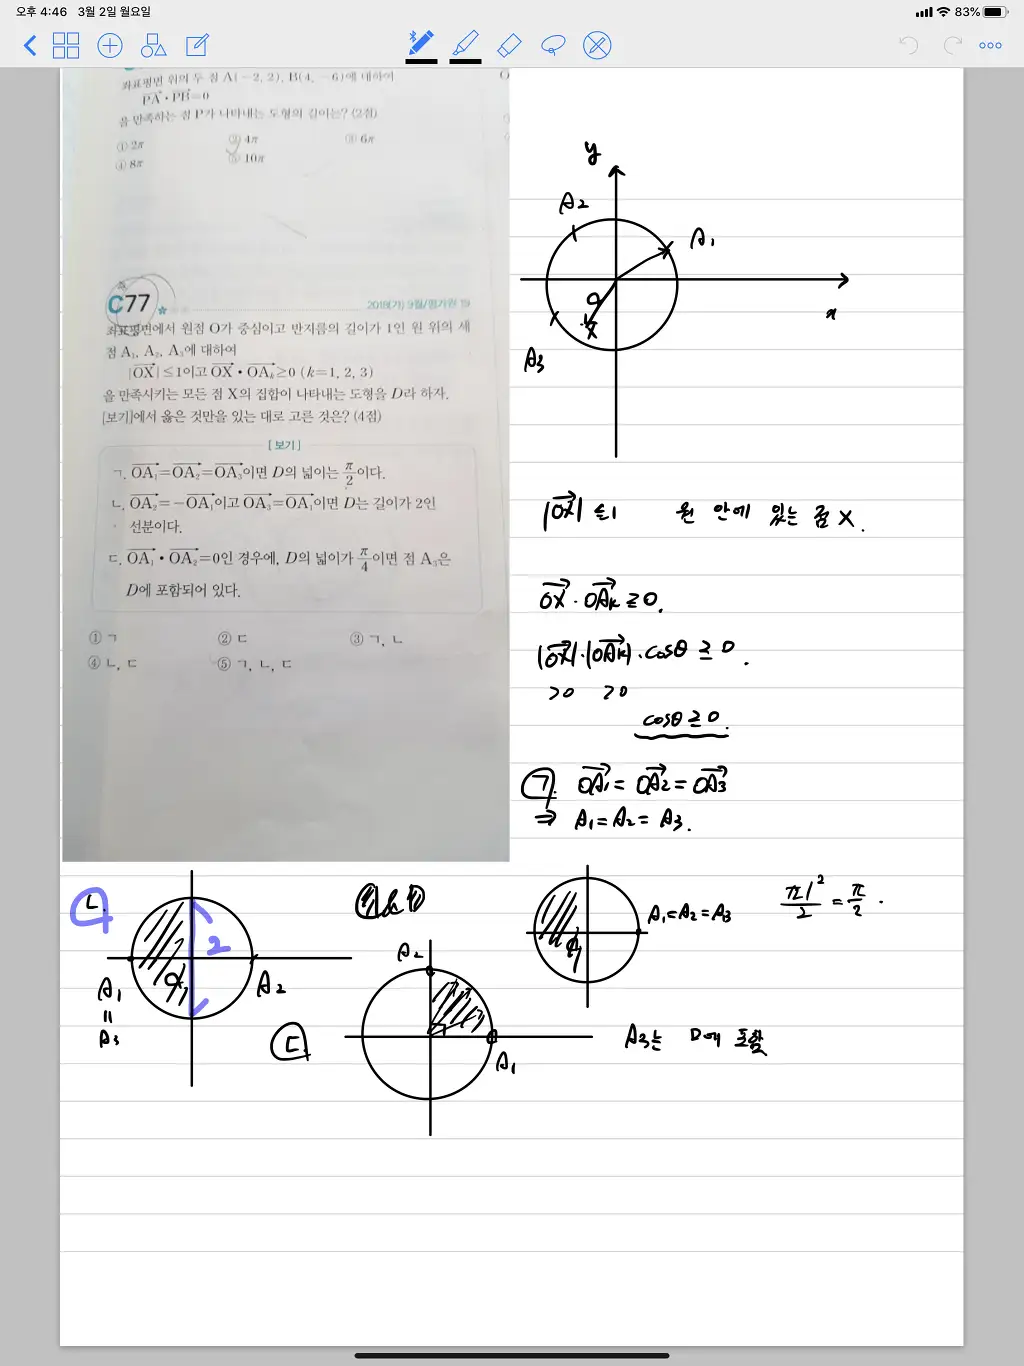 오후 4:46 3월 2일 월요일
83%
좌표평면 위의 두 점 A(-2, 2), B(4, -6)에 대하여
PA·PB=0
을 만족하는 점 P가 나타내는 도형의 길이는? (2점)
① 2π ② 4π ③ 6π
④ 8π ⑤ 10π
C77
2018(가) 9월/평가원 19
좌표평면에서 원점 O가 중심이고 반지름의 길이가 1인 원 위의 세
점 A₁, A₂, A₃에 대하여
|OX|≤1이고 OX·OAₖ≥0 (k=1, 2, 3)
을 만족시키는 모든 점 X의 집합이 나타내는 도형을 D라 하자.
[보기]에서 옳은 것만을 있는 대로 고른 것은? (4점)
[보기]
ㄱ. OA₁=OA₂=OA₃이면 D의 넓이는 π/2이다.
ㄴ. OA₂=-OA₁이고 OA₃=OA₁이면 D는 길이가 2인
선분이다.
ㄷ. OA₁·OA₂=0인 경우에, D의 넓이가 π/4이면 점 A₃은
D에 포함되어 있다.
① ㄱ ② ㄷ ③ ㄱ, ㄴ
④ ㄴ, ㄷ ⑤ ㄱ, ㄴ, ㄷ
y
A2
A1
x
X
A3
|OX|≤1 원 안에 있는 점 X.
OX·OAk≥0.
|OX|·|OAk|·cosθ≥0.
>0 >0
cosθ≥0.
ㄱ. OA1=OA2=OA3
⇒ A1=A2=A3.
A1=A2=A3
π1²/2=π/2.
ㄴ.
2
A1
=
A3
A2
ㄷ.
A2
A1
A3는 D에 포함